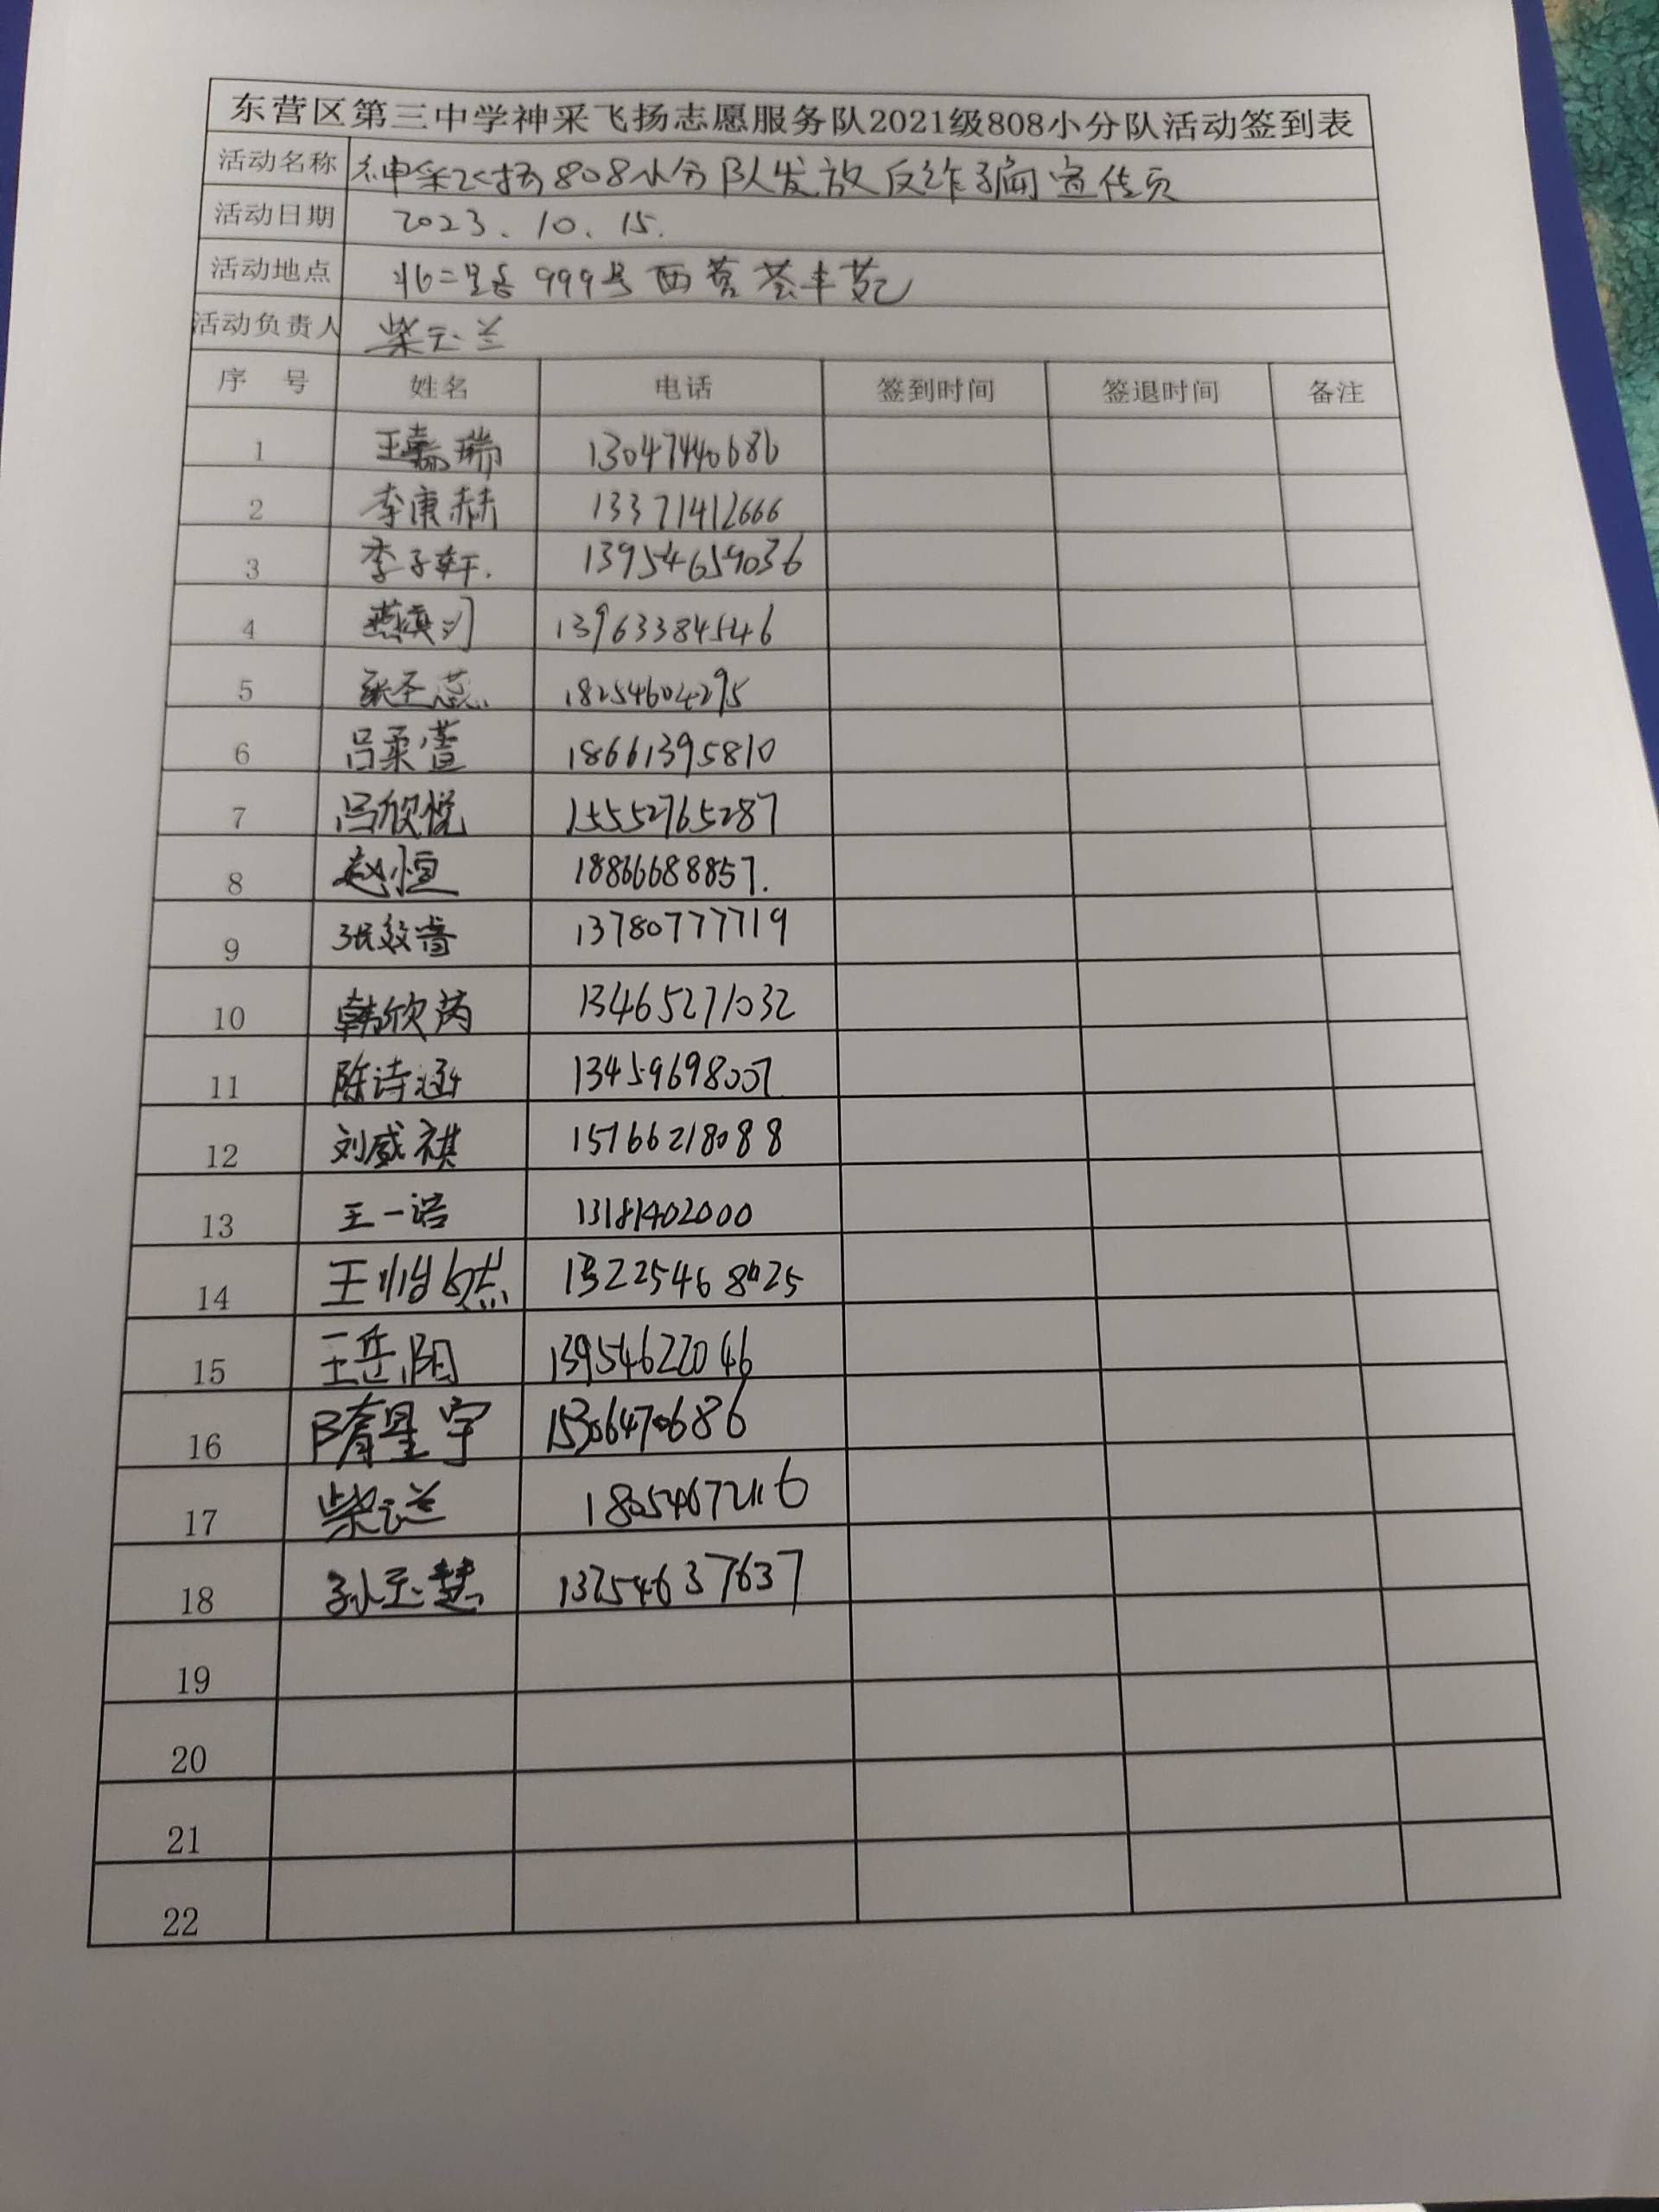 东营区第三中学神采飞扬志愿服务队2021级808小分队活动签到表
活动名称 神采飞扬808小分队发放反诈骗宣传页
活动日期 2023.10.15.
活动地点 北二路999号西营荟丰苑
活动负责人 柴玉兰
序 号 姓名 电话 签到时间 签退时间 备注
1 王嘉瑞 13047440686
2 李庚赫 13371412666
3 李子轩. 13954659036
4 13963384546
5 张圣蕊 18254604295
6 吕柔萱 18661395810
7 吕欣悦 15552765287
8 赵恒 18866688857.
9 张毅睿 13780777719
10 韩欣芮 13465271032
11 陈诗涵 13459698007
12 刘威祺 15766218088
13 王一诺 13181402000
14 王怡然
15 王岳阳 13954622046
16 隋星宇 15306470686
17 柴玉兰 18054672116
18 孙玉慧 13254637637
19
20
21
22